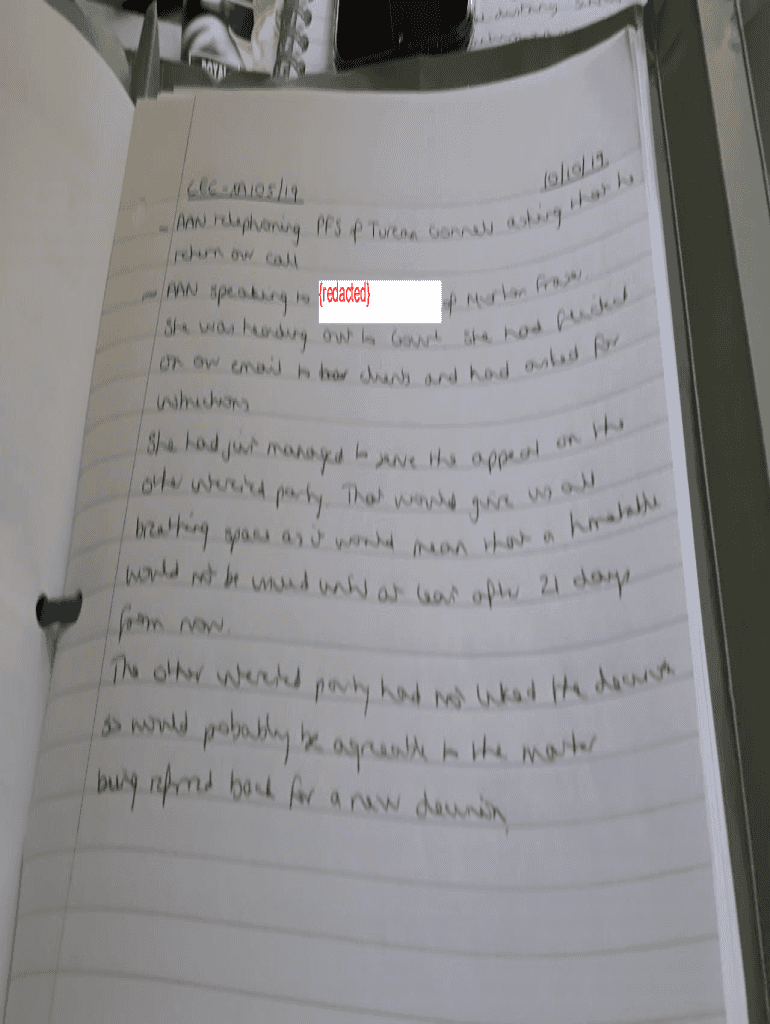 ROYAL
CEC-XA105/19 10/10/19
- AAN telephoning PFS of Turcan Connell asking that he
return our call
- AAN speaking to {redacted} of Morton Fraser.
She was heading out to Court. She had
on our email to clients and had asked for
instructions
She had just managed to serve the appeal on the
other interested party. That would give us all
breathing space as it would mean that a timetable
would not be issued until at least after 21 days
from now.
The other interested party had not liked the decision
so would probably be agreeable to the matter
being referred back for a new decision